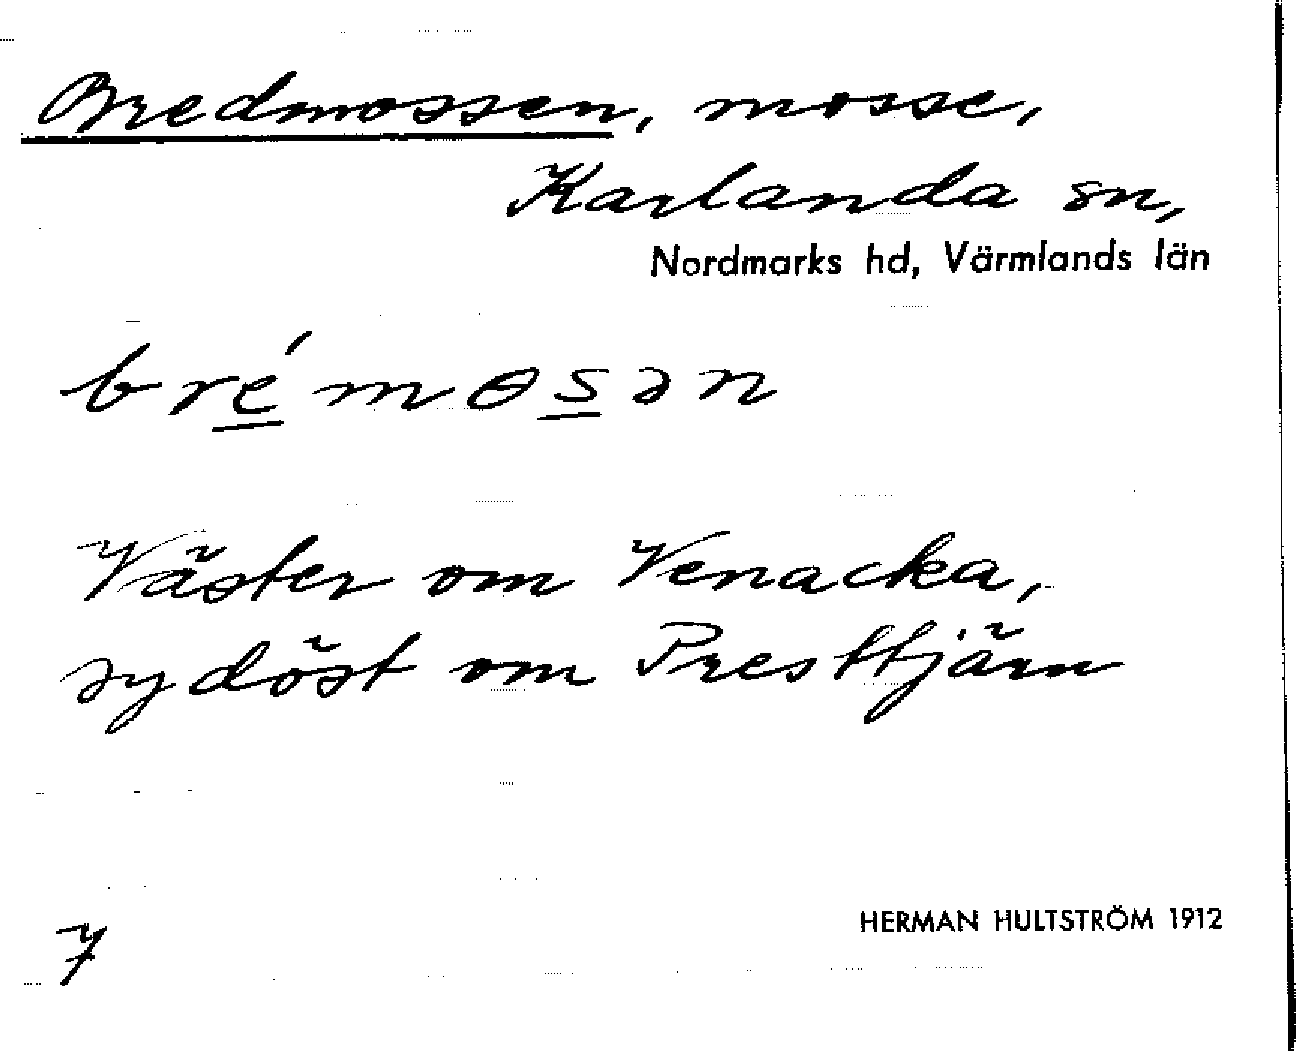 Bredmossen, mosse,
Karlanda sn,
Nordmarks hd, Värmlands län
brémɵsən
Väster om Venacka,
sydöst om Presttjärn
HERMAN HULTSTRÖM 1912
7